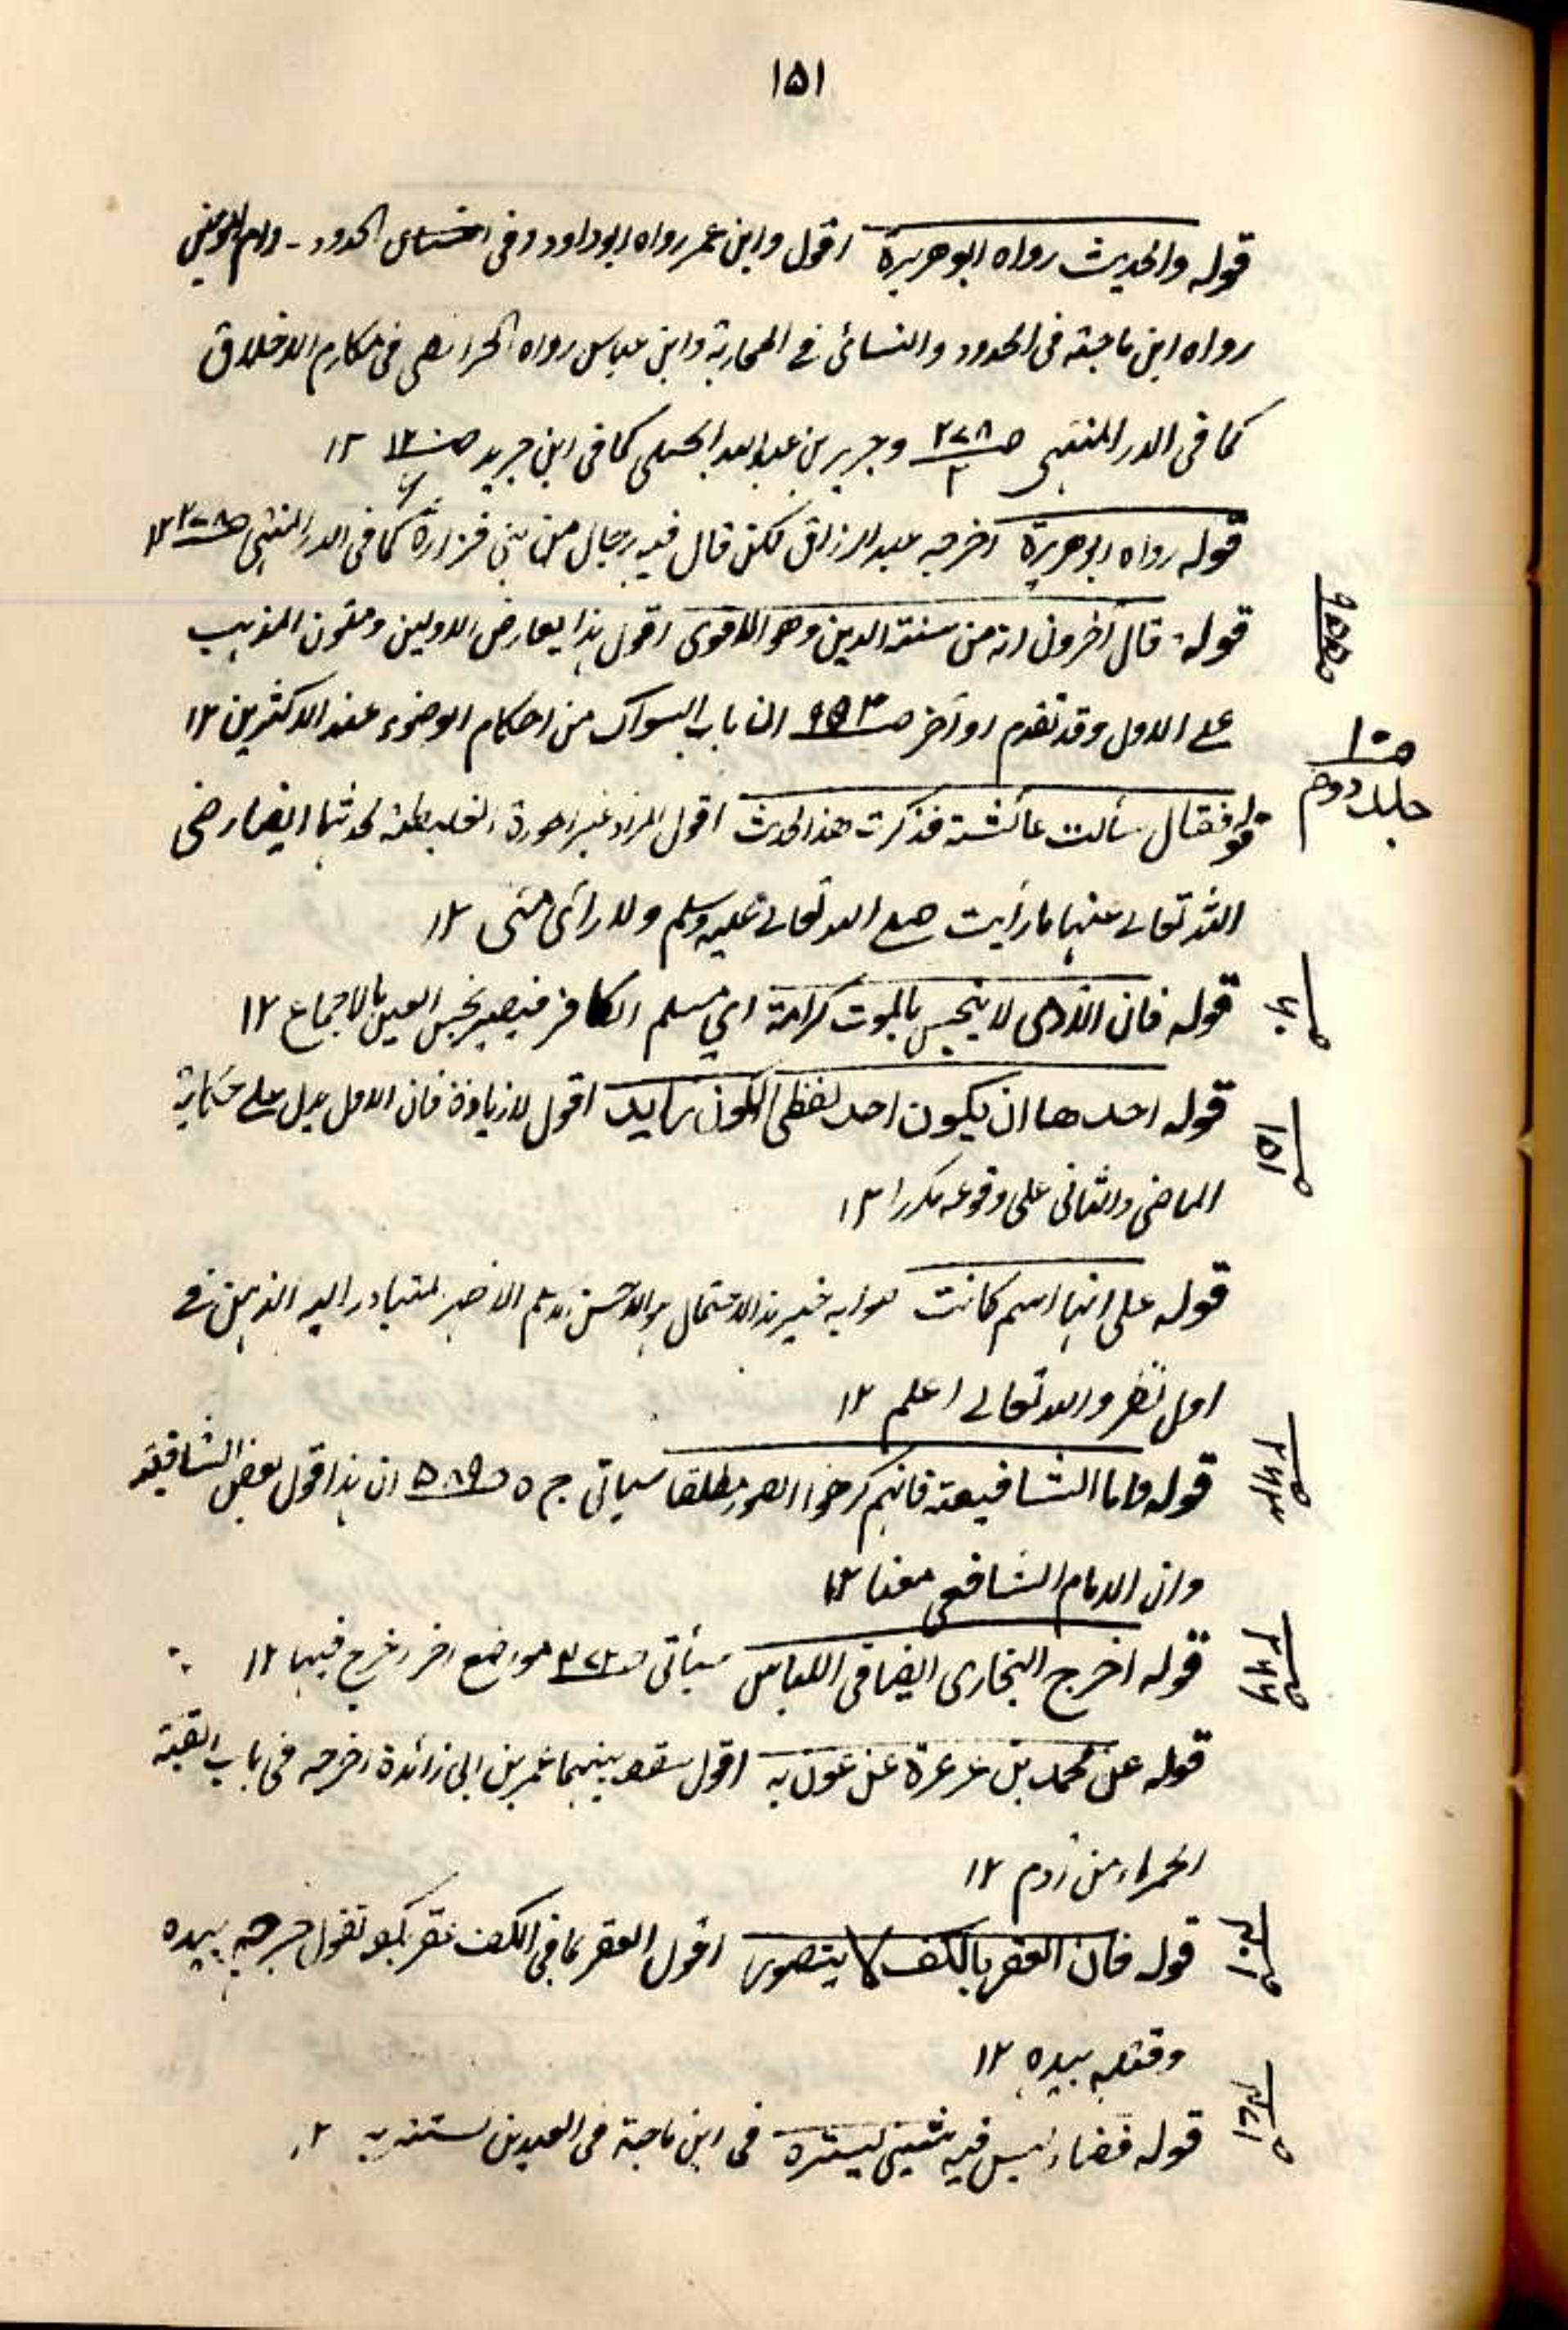 ۱۵۱
قوله والحديث رواه ابو هريرة اقول وابن عمر رواه ابوداود وفي الحدود - وام المؤمنين
رواه ابن ماجة فى الحدود والنسائى فے المحاربة وابن عباس رواه الخرائطى فى مكارم الاخلاق
كما فى الدر المنتهى صـ ٢٧٨ / ٢ وجرير بن عبد الله البجلى كما فى ابن جرير صـ ١٢
قوله رواه ابو هريرة اخرجه عبد الرزاق لكن قال فيه رجال من بنى فزارة كما فى الدر المنتهى صـ ٢٧٨ ١٢
قوله قال آخرون انه من سنة الدين وهو الاقوى اقول هذا يعارض الاولين ومتون المذهب
على الاول وقد تقدم اواخر صـ ان باب السواك من احكام الوضوء عند الاكثرين ١٢
صـ١٠٠
جلد دوم
قوله فقال سألت عائشة فذكرت هذا الحديث اقول المراد غير صورة لحديثها ايضا رضى
الله تعالى عنها ما رأيت صلے الله تعالے عليه وسلم ولا رأى منى ١٢
قوله فان الآدمى لا ينجس بالموت كرامة اى مسلم الكافر فيصير نجس العين بالاجماع ١٢
قوله احدها ان يكون احد لفظى الكون زايد اقول لا زيادة فان الاول يدل على حكاية
صـ ١٥١
الماضى والثانى على وقوعه مكررا ١٢
قوله على انها اسم كانت هذا الاحتمال هو الاحسن المتبادر اليه الذهن فے
اول نظر والله تعالے اعلم ١٢
قوله واما الشافعية فانهم كرهوا الصور مطلقا سياتى ج ٥ صـ ٥٨٩ ان هذا قول بعض الشافعية
وان الامام الشافعى معنا ١٢
قوله اخرج البخارى ايضا فى اللباس سيأتى صـ مواضع اخر اخرج فيها ١٢
صـ ٢٦٦
قوله عن محمد بن عرعرة عن عون به اقول سقط بينهما عمر بن ابى زائدة اخرجه فى باب القبة
الحمراء من ادم ١٢
قوله فان العقر بالكف لا يتصور اقول العقر بما فى الكف عقر بكف تقول جرحه بيده
وقتله بيده ١٢
قوله فضاء ليس فيه شيئى يستره فى ابن ماجة فى العيدين يستتر به ١٢